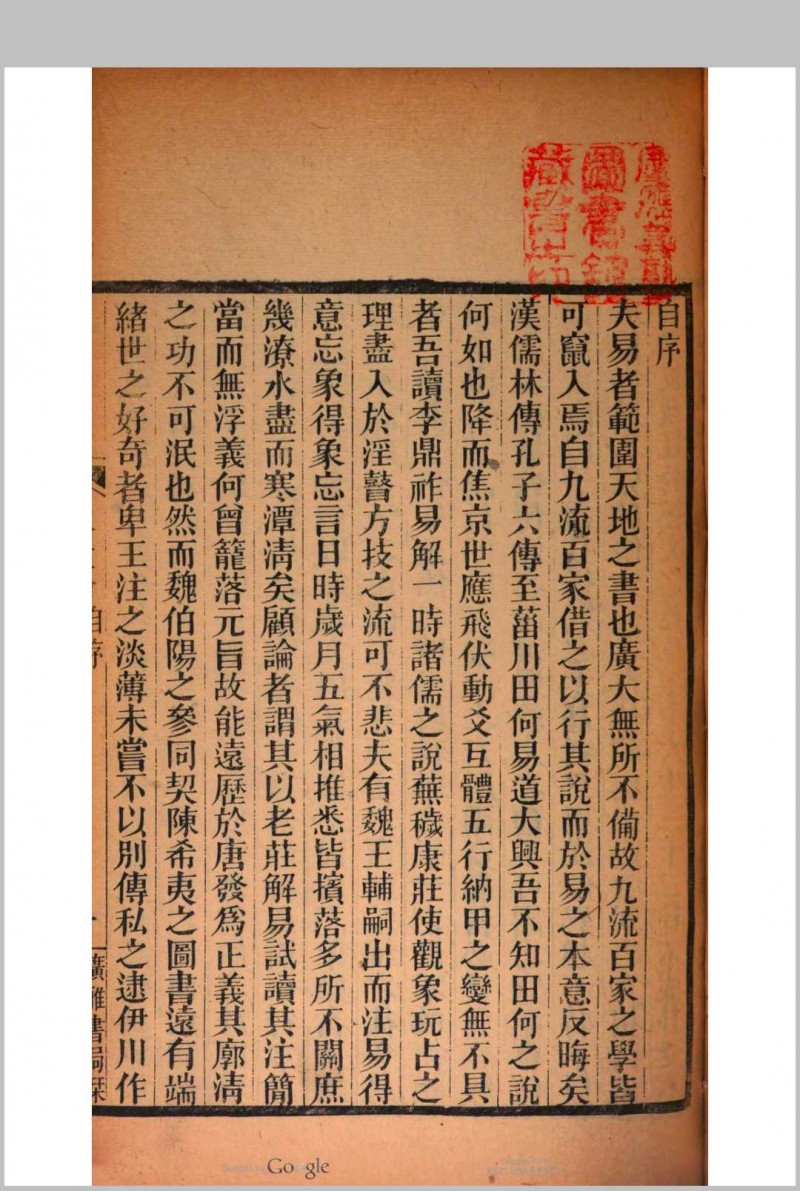 自序
夫易者範圍天地之書也廣大無所不備故九流百家之學皆
可竄入焉自九流百家借之以行其說而於易之本意反晦矣
漢儒林傳孔子六傳至菑川田何易道大興吾不知田何之說
何如也降而焦京世應飛伏動爻互體五行納甲之變無不具
者吾讀李鼎祚易解一時諸儒之說蕪穢康莊使觀象玩占之
理盡入於淫瞽方技之流可不悲夫有魏王輔嗣出而注易得
意忘象得象忘言日時歲月五氣相推悉皆擯落多所不關庶
幾潦水盡而寒潭淸矣顧論者謂其以老莊解易試讀其注簡
當而無浮義何曾籠落元旨故能遠歷於唐發爲正義其廓淸
之功不可泯也然而魏伯陽之參同契陳希夷之圖書遠有端
緒世之好奇者卑王注之淡薄未嘗不以別傳私之逮伊川作
自序
廣雅書局栞
Google